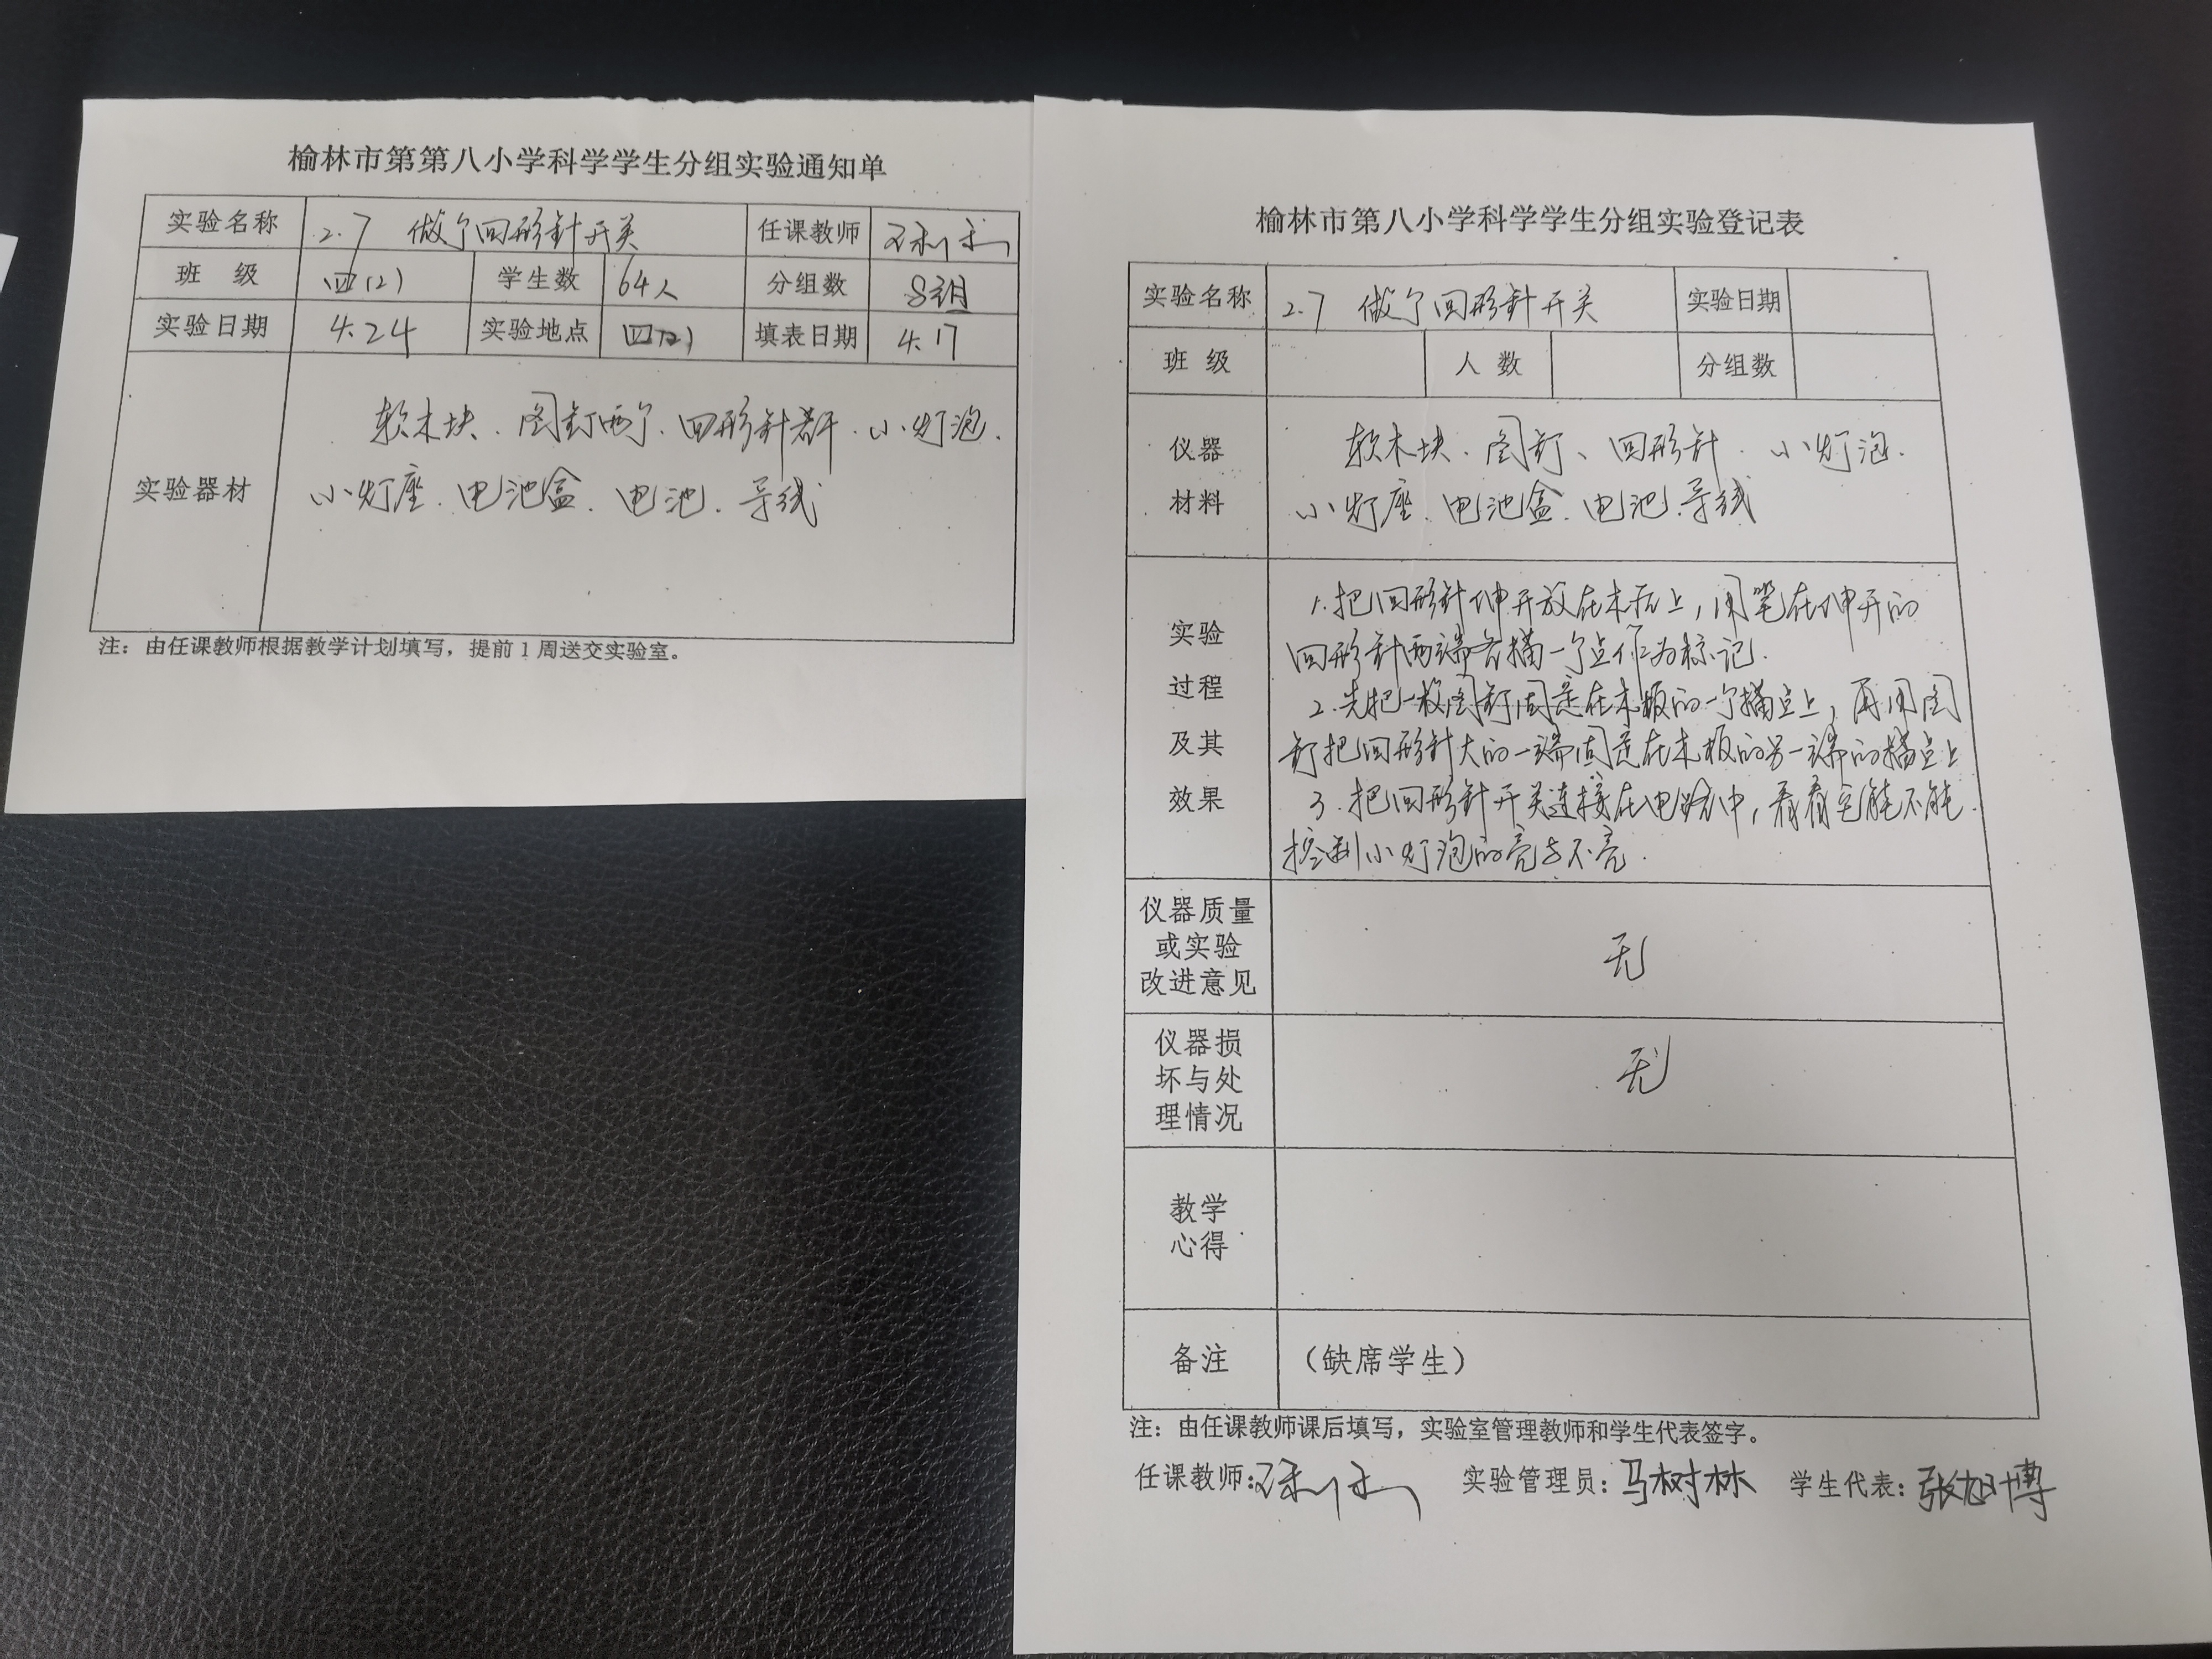 榆林市第第八小学科学学生分组实验通知单
实验名称 2.7 做个回形针开关 任课教师
班 级 四(2) 学生数 64人 分组数 8组
实验日期 4.24 实验地点 四(2) 填表日期 4.17
实验器材
软木块、图钉两个、回形针若干、小灯泡、
小灯座、电池盒、电池、导线
注：由任课教师根据教学计划填写，提前1周送交实验室。
榆林市第八小学科学学生分组实验登记表
实验名称 2.7 做个回形针开关 实验日期
班 级 人 数 分组数
仪器
材料
软木块、图钉、回形针、小灯泡、
小灯座、电池盒、电池、导线
实验
过程
及其
效果
1.把回形针伸开放在木板上，用笔在伸开的
回形针两端各描一个点作为标记.
2.先把一枚图钉固定在木板的一个描点上，再用图
钉把回形针大的一端固定在木板的另一端的描点上
3.把回形针开关连接在电路中，看看它能不能
控制小灯泡的亮与不亮.
仪器质量
或实验
改进意见
无
仪器损
坏与处
理情况
无
教学
心得
备注 （缺席学生）
注：由任课教师课后填写，实验室管理教师和学生代表签字。
任课教师： 实验管理员：马树林 学生代表：张旭博